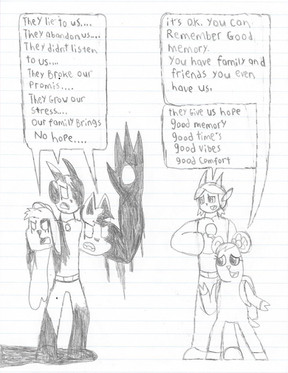 They lie to us....
They abandon us....
They didnt listen
to us....
They Broke our
Promis....
They Grow our
Stress....
Our family Brings
No hope....
it's O.K. you can
Remember Good
memory.
You have family and
friends you even
have us.
they Give us hope
good memory
good time's
good vibes
good comfort